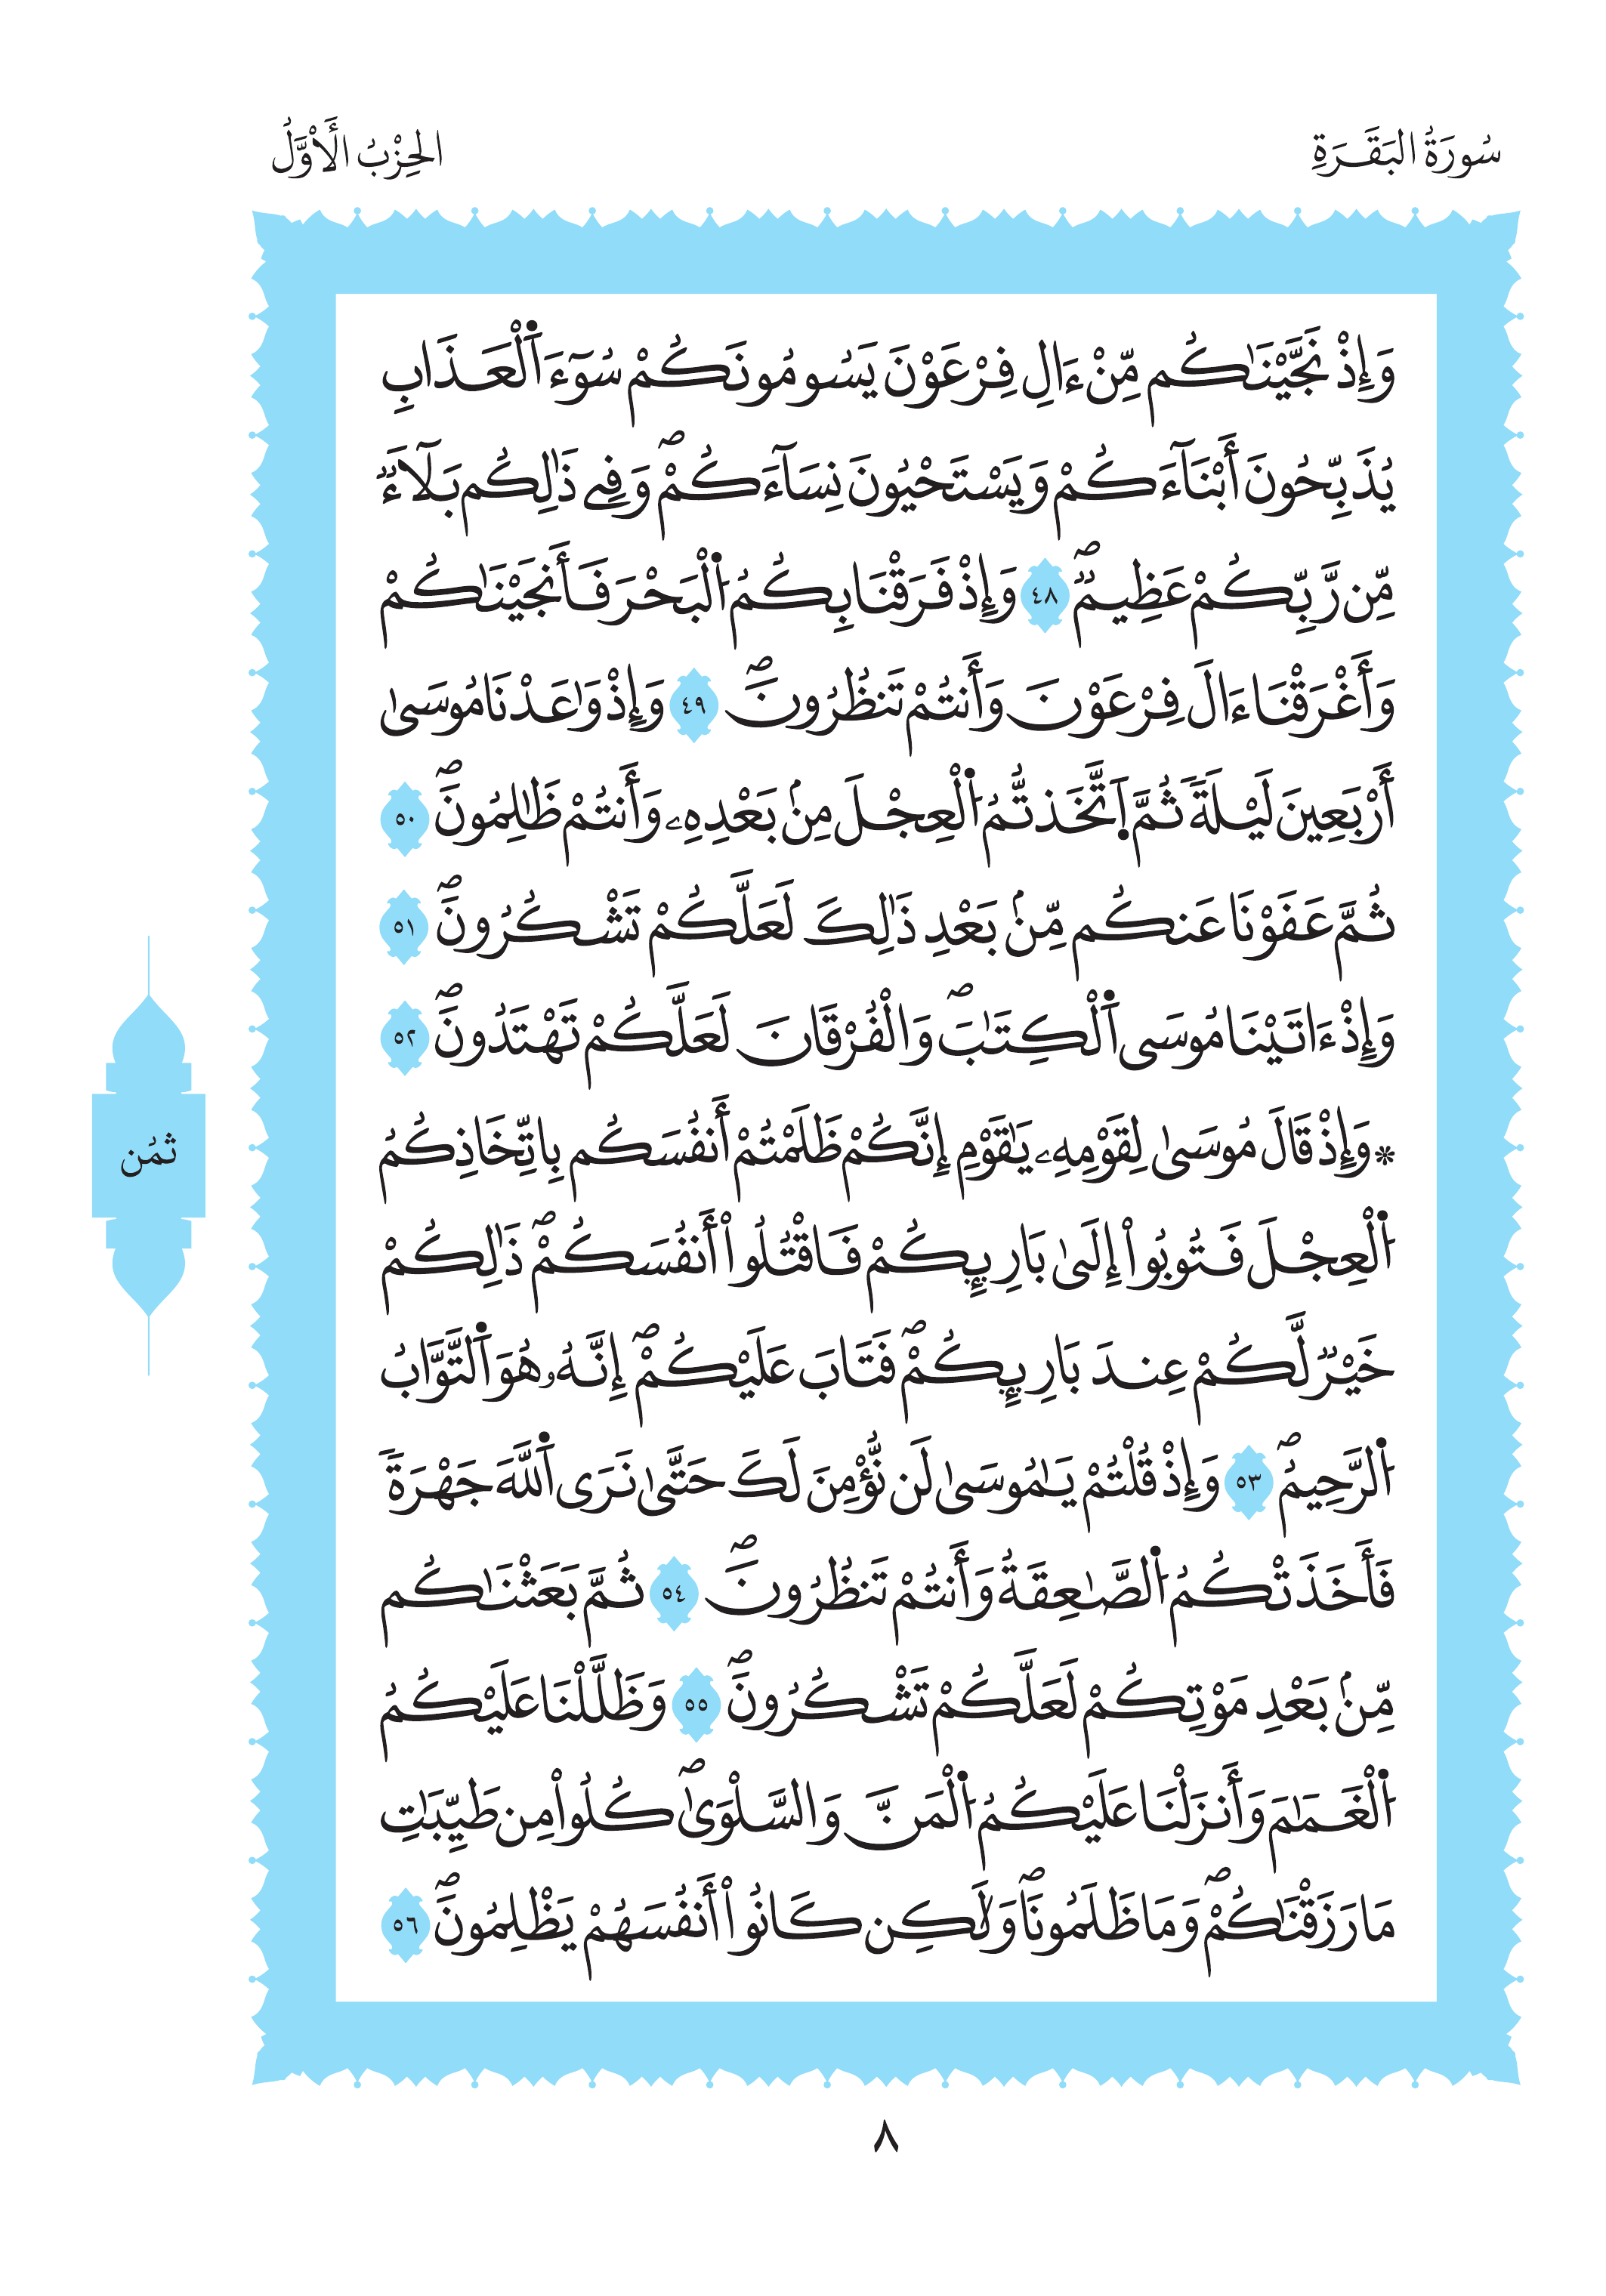 سُورَةُ البَقَـرَةِ
الحِزْبُ الأَوَّلُ
وَإِذْ نَجَّيْنَٰكُم مِّنْ ءَالِ فِرْعَوْنَ يَسُومُونَكُمْ سُوٓءَ اَ۬لْعَذَابِ
يُذَبِّحُونَ أَبْنَآءَكُمْ وَيَسْتَحْيُونَ نِسَآءَكُمْۖ وَفِے ذَٰلِكُم بَلَآءٞ
مِّن رَّبِّكُمْ عَظِيمٞۖ ٤٨ وَإِذْ فَرَقْنَا بِكُمُ اُ۬لْبَحْرَ فَأَنجَيْنَٰكُمْ
وَأَغْرَقْنَا ءَالَ فِرْعَوْنَ وَأَنتُمْ تَنظُرُونَۖ ٤٩ وَإِذْ وَٰعَدْنَا مُوسَىٰ
أَرْبَعِينَ لَيْلَةٗ ثُمَّ اَ۪تَّخَذتُّمُ اُ۬لْعِجْلَ مِنۢ بَعْدِهِۦ وَأَنتُمْ ظَٰلِمُونَۖ ٥٠
ثُمَّ عَفَوْنَا عَنكُم مِّنۢ بَعْدِ ذَٰلِكَ لَعَلَّكُمْ تَشْكُرُونَۖ ٥١
وَإِذْ ءَاتَيْنَا مُوسَى اَ۬لْكِتَٰبَۖ وَالْفُرْقَانَ لَعَلَّكُمْ تَهْتَدُونَۖ ٥٢
* وَإِذْ قَالَ مُوسَىٰ لِقَوْمِهِۦ يَٰقَوْمِ إِنَّكُمْ ظَلَمْتُمْ أَنفُسَكُم بِاتِّخَاذِكُمُ
اُ۬لْعِجْلَ فَتُوبُوا۟ إِلَىٰ بَارِئِكُمْ فَاقْتُلُوا۟ أَنفُسَكُمْۖ ذَٰلِكُمْ
خَيْرٞ لَّكُمْ عِندَ بَارِئِكُمْۖ فَتَابَ عَلَيْكُمْۖ إِنَّهُۥ هُوَ اَ۬لتَّوَّابُ
اُ۬لرَّحِيمُۖ ٥٣ وَإِذْ قُلْتُمْ يَٰمُوسَىٰ لَن نُّؤْمِنَ لَكَ حَتَّىٰ نَرَى اَ۬للَّهَ جَهْرَةٗ
فَأَخَذَتْكُمُ اُ۬لصَّٰعِقَةُ وَأَنتُمْ تَنظُرُونَۖ ٥٤ ثُمَّ بَعَثْنَٰكُم
مِّنۢ بَعْدِ مَوْتِكُمْ لَعَلَّكُمْ تَشْكُرُونَۖ ٥٥ وَظَلَّلْنَا عَلَيْكُمُ
اُ۬لْغَمَٰمَ وَأَنزَلْنَا عَلَيْكُمُ اُ۬لْمَنَّ وَالسَّلْوَىٰۖ كُلُوا۟ مِن طَيِّبَٰتِ
مَا رَزَقْنَٰكُمْۖ وَمَا ظَلَمُونَاۖ وَلَٰكِن كَانُوا۟ أَنفُسَهُمْ يَظْلِمُونَۖ ٥٦
ثمُن
٨